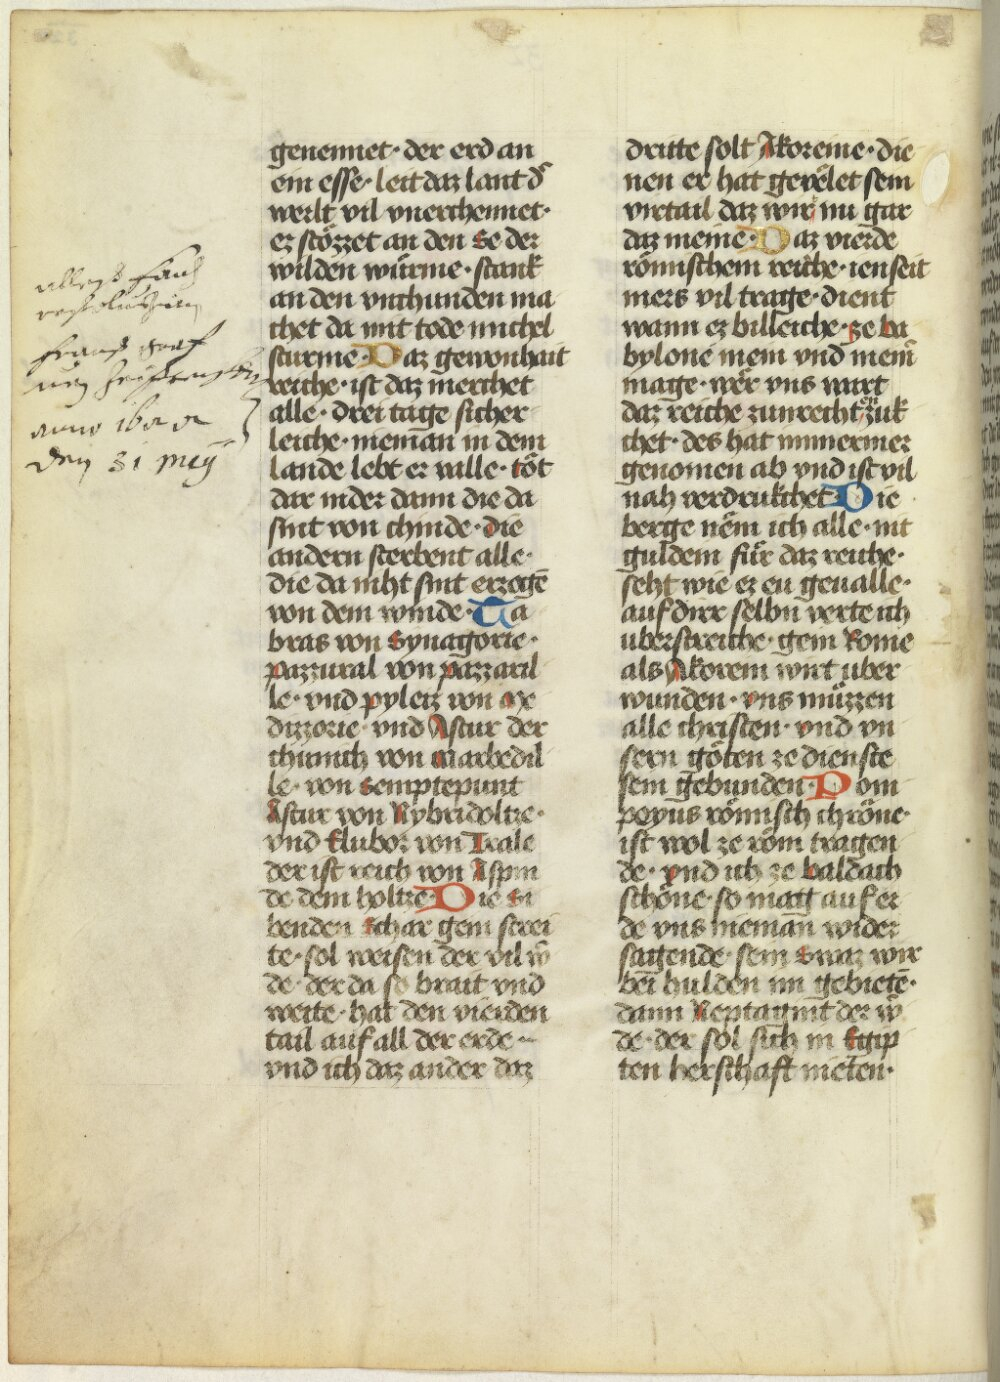 genennet · der erd an
ein esse · leit daz lant d̾
werlt vil vnerchennet ·
ez stözzet an den Se der
wilden würme · stark
an den vnchunden ma
chet da mit tode michel
sturme · Daz gewonhait
reiche · ist daz merchet
alle · drei tage sicher
leiche · nieman in dem
lande lebt er valle · töt
dar nider dann die da
sint von chinde · die
andern sterbent alle ·
die da niht sint erzogē
von dem winde · Ta
bras von Synagorie ·
pazzural von pazzaril
le · vnd pyletz von Me
dizzorie · vnd Astur der
chunich von marbedil
le · von Semptepunt
Astur von Nybridoltze ·
vnd Klubor von Trale
der ist reich von Aspin
de dem holtze · Die Si
benden Schar gein strei
te · sol weisen der vil w̄
de · der da so brait vnd
weite · hat den vierden
tail auf all der erde ~
vnd ich daz ander daz
dritte solt Akoreine · die
nen er hat gevelet sein
virtail daz wir nu gar
daz meine · Daz vierde
römischem reiche · ienseit
mers vil trage · dient
wann ez billeiche · ze ba
bylone mein vnd mein̄
mage · wër vns wart
daz reiche zunrecht enzuk
chet · des hat immermer
genomen ab vnd ist vil
nah verdrukchet · Die
berge nëm ich alle · nit
guldein für daz reiche ·
seht wie ez eu geualle ·
auf dirr selbn verte ich
uberstreiche · gein Rome
als Akorein wirt uber
wunden · vns müzzen
alle christen · vnd vn
sern göten ze dienste
sein gebunden · Pom
peyus römisch chröne ·
ist wol ze röm tragen
de · vnd ich ze baldach
schöne · so mag auf er
de vns nieman wider
sagende · sein Swaz wir
bei hulden im gebietē ·
dann Neptagint der w̄
de · der sol sich in Egip
ten herschaft nieten ·
anno
den 31 Meÿ